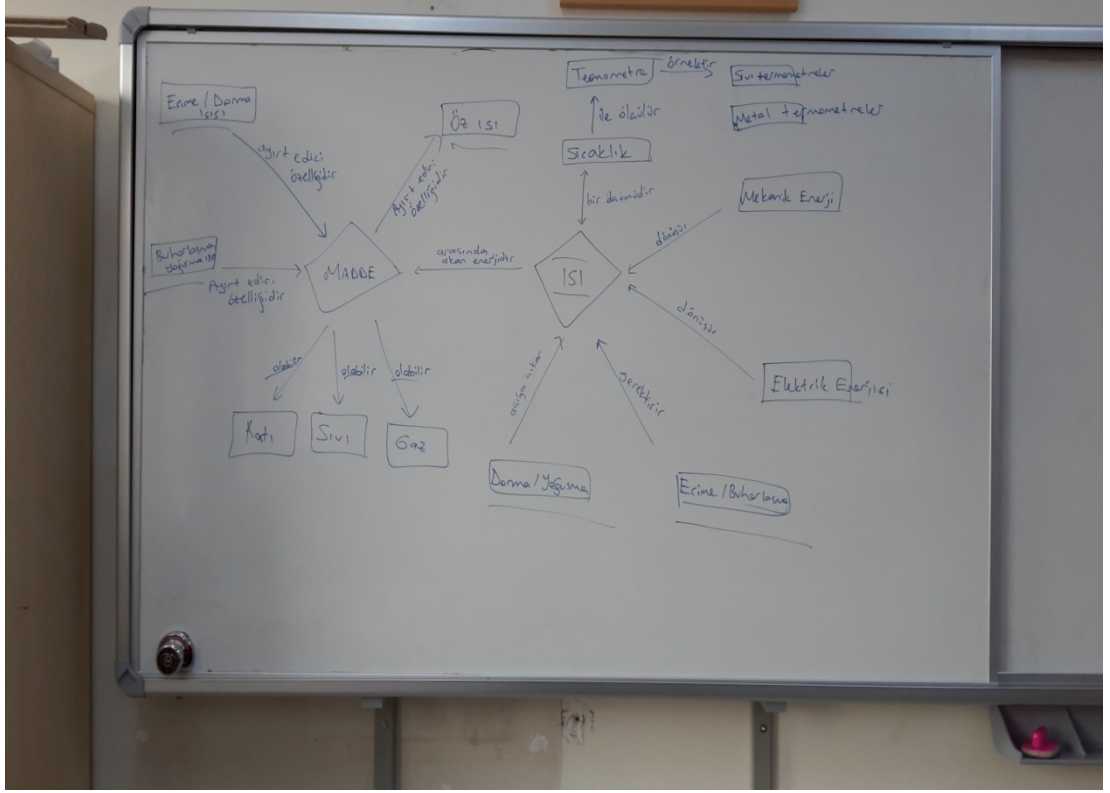 Erime / Donma
ısısı
ayırt edici
özelliğidir
Öz ısı
Ayırt edici
özelliğidir
Buharlaşma
yoğuşma ısı
Ayırt edici
özelliğidir
MADDE
olabilir
olabilir
olabilir
Katı
Sıvı
Gaz
arasında
akan enerjidir
ISI
Termometre
örnektir
Sıvı termometreler
Metal termometreler
ile ölçülür
Sıcaklık
Mekanik Enerji
dönüşür
dönüşür
Elektrik Enerjisi
açığa çıkar
gerektirir
Donma / Yoğuşma
Erime / Buharlaşma